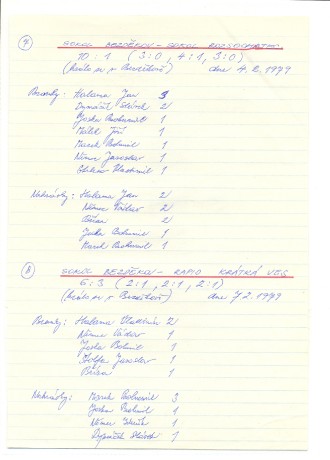 SOKOL BEZDĚKOV - SOKOL
10 : 1 (3:0, 4:1, 3:0)
(hrálo se v Bezděkově) dne 4.2.1979
Branky: Halama Jan 3
Dymáček Slávek 2
Joska Bohumil 1
Málek Jiří 1
Marek Bohumil 1
Němec Jaroslav 1
Vlastimil 1
Nahrávky: Halama Jan 2
Němec Václav 2
2
Joska Bohumil 1
Marek Bohumil 1
SOKOL BEZDĚKOV - RAPID KRÁTKÁ VES
6:3 (2:1, 2:1, 2:1)
(hrálo se v Bezděkově) dne 7.2.1979
Branky: Halama Vlastimil 2
Němec Václav 1
Joska Bohumil 1
Jaroslav 1
1
Nahrávky: Marek Bohumil 3
Joska Bohumil 1
Němec 1
Dymáček Slávek 1